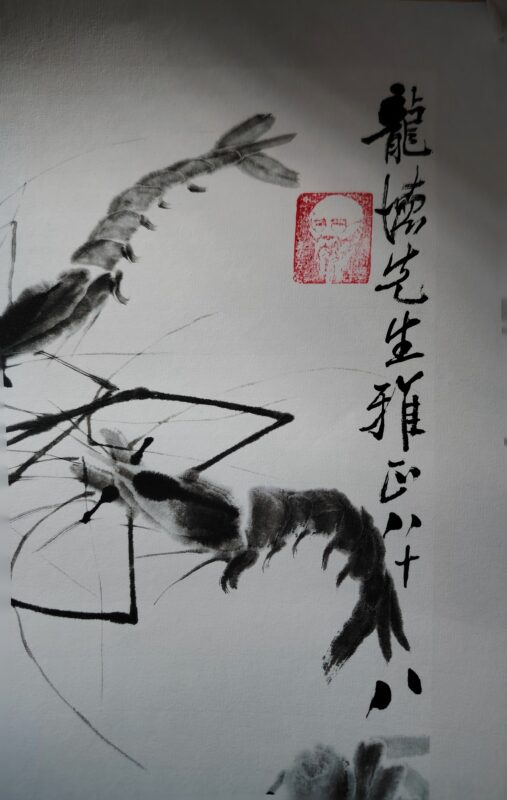 龍先生雅正八十八